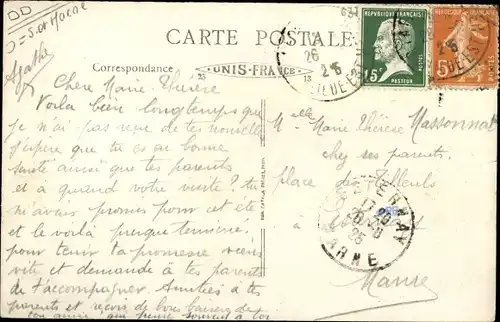 DD
D = S.et MARNE
Agathe
CARTE POSTALE
Correspondance
UNIS-FRANCE
REPUBLIQUE FRANÇAISE
15c
POSTES
PASTEUR
5
26
2-5
Chère Marie-Thérèse
Voilà bien longtemps que
je n'ai pas reçu de tes nouvelles
j'espère que tu es en bonne
santé ainsi que tes parents
et à quand votre visite? tu
m'avais promis pour cet été
et le voilà presque terminé.
pour tenir ta promesse viens
vite et demande à tes parents
de t'accompagner. Amitiés à tes
parents et reçois de bons baisers de
ton amie qui pense souvent à toi
Melle Marie Thérèse Massonnat
chez ses parents.
place des Tilleuls
à
Marne
EPERNAY
MARNE